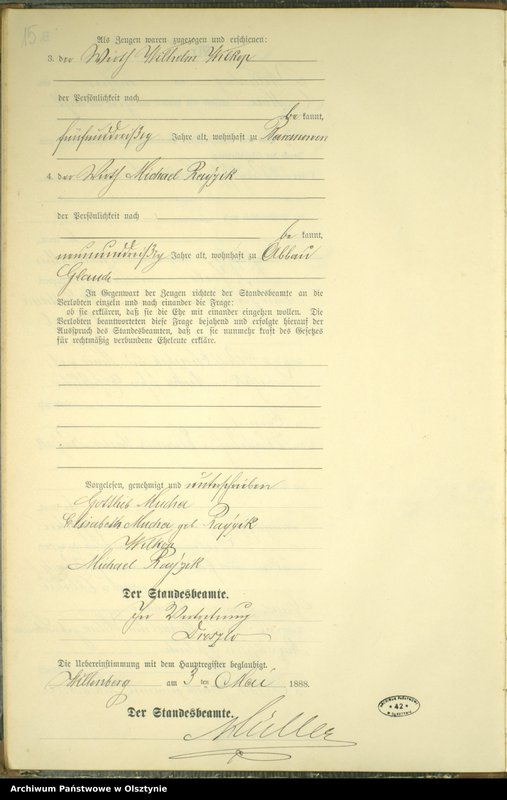 15
Als Zeugen waren zugezogen und erschienen:
3. der Wirth Wilhelm Witkop
der Persönlichkeit nach
be kannt,
fünfunddreißig Jahre alt, wohnhaft zu
4. der Wirth Michael Rayzik
der Persönlichkeit nach
be kannt,
neununddreißig Jahre alt, wohnhaft zu Abbau
Glauch
In Gegenwart der Zeugen richtete der Standesbeamte an die
Verlobten einzeln und nach einander die Frage:
ob sie erklären, daß sie die Ehe mit einander eingehen wollen. Die
Verlobten beantworteten diese Frage bejahend und erfolgte hierauf der
Ausspruch des Standesbeamten, daß er sie nunmehr kraft des Gesetzes
für rechtmäßig verbundene Eheleute erkläre.
Vorgelesen, genehmigt und unterschrieben
Gottlieb Mucha
Elisabeth Mucha geb Rayzik
Witkop
Michael Rayzik
Der Standesbeamte.
In Vertretung
Die Uebereinstimmung mit dem Hauptregister beglaubigt.
Willenberg am 3 ten Mai 1888.
Der Standesbeamte.
Müller
42
Archiwum Państwowe w Olsztynie